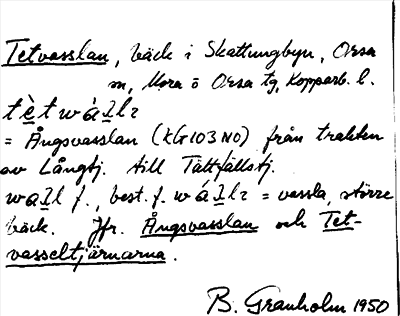 Tetvasslan, bäck i Skattungbyn, Orsa
sn, Mora o Orsa tg, Kopparb. l.
tètwàlɪ
= Ångsvasslan (KG103NO) från trakten
av Långtj. till Tättfällstj.
wal f., best. f. wálɪ = vassla, större
bäck. Jfr. Ångsvasslan och Tet-
vasseltjärnarna.
B. Granholm 1950